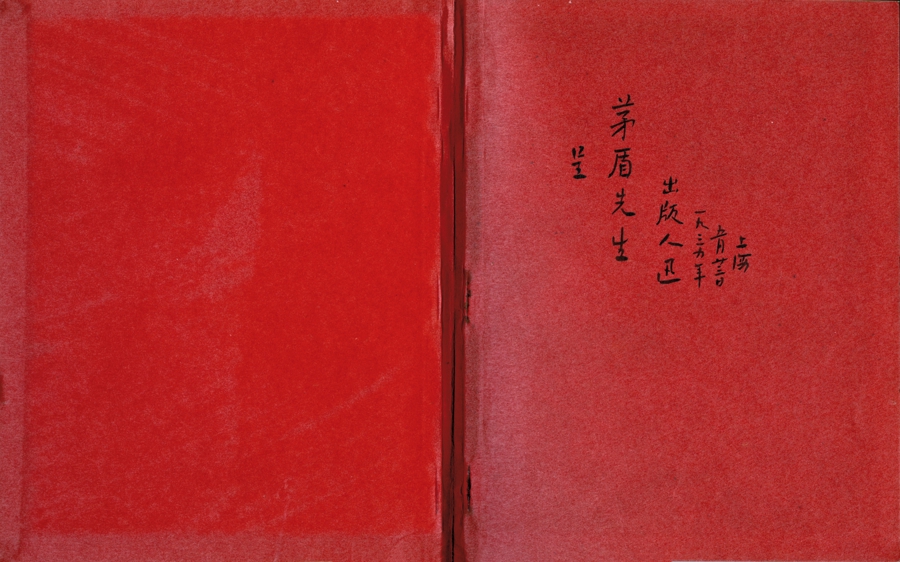 呈
茅盾先生
出版人迅
一九三五年
五月廿三日
上海